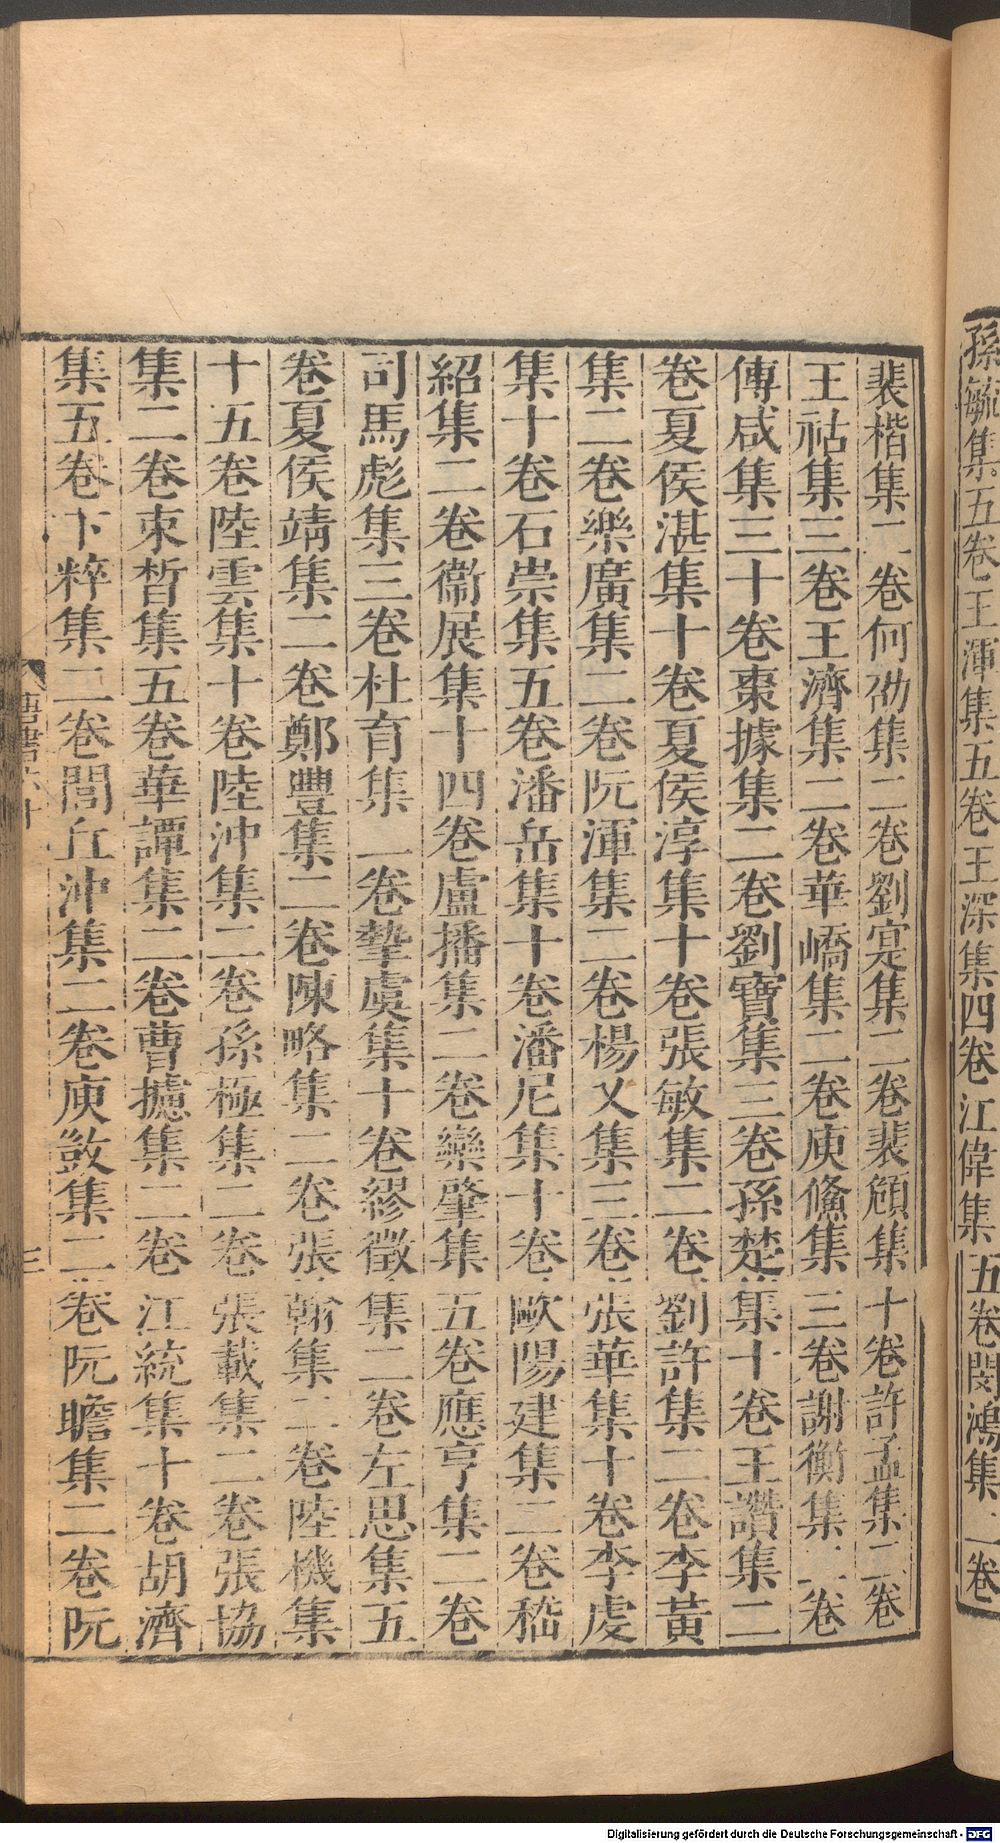 孫毓集五卷王渾集五卷王深集四卷江偉集五卷閔鴻集二卷
裴楷集二卷何劭集二卷劉寔集二卷裴頠集十卷許孟集二卷
王祜集三卷王濟集二卷華嶠集二卷庾儵集三卷謝衡集二卷
傅咸集三十卷棗據集二卷劉寶集三卷孫楚集十卷王讚集二
卷夏侯湛集十卷夏侯淳集十卷張敏集二卷劉許集二卷李黃
集二卷樂廣集二卷阮渾集二卷楊乂集三卷張華集十卷李虔
集十卷石崇集五卷潘岳集十卷潘尼集十卷歐陽建集二卷嵇
紹集二卷衞展集十四卷盧播集二卷欒肇集五卷應亨集二卷
司馬彪集三卷杜育集一卷摯虞集十卷繆徵集二卷左思集五
卷夏侯靖集二卷鄭豐集二卷陳略集二卷張翰集二卷陸機集
十五卷陸雲集十卷陸沖集二卷孫極集二卷張載集二卷張協
集二卷束晳集五卷華譚集二卷曹攄集二卷江統集十卷胡濟
集五卷卞粹集二卷閭丘沖集二卷庾敳集二卷阮瞻集二卷阮
唐書六十
三
Digitalisierung gefördert durch die Deutsche Forschungsgemeinschaft - DFG